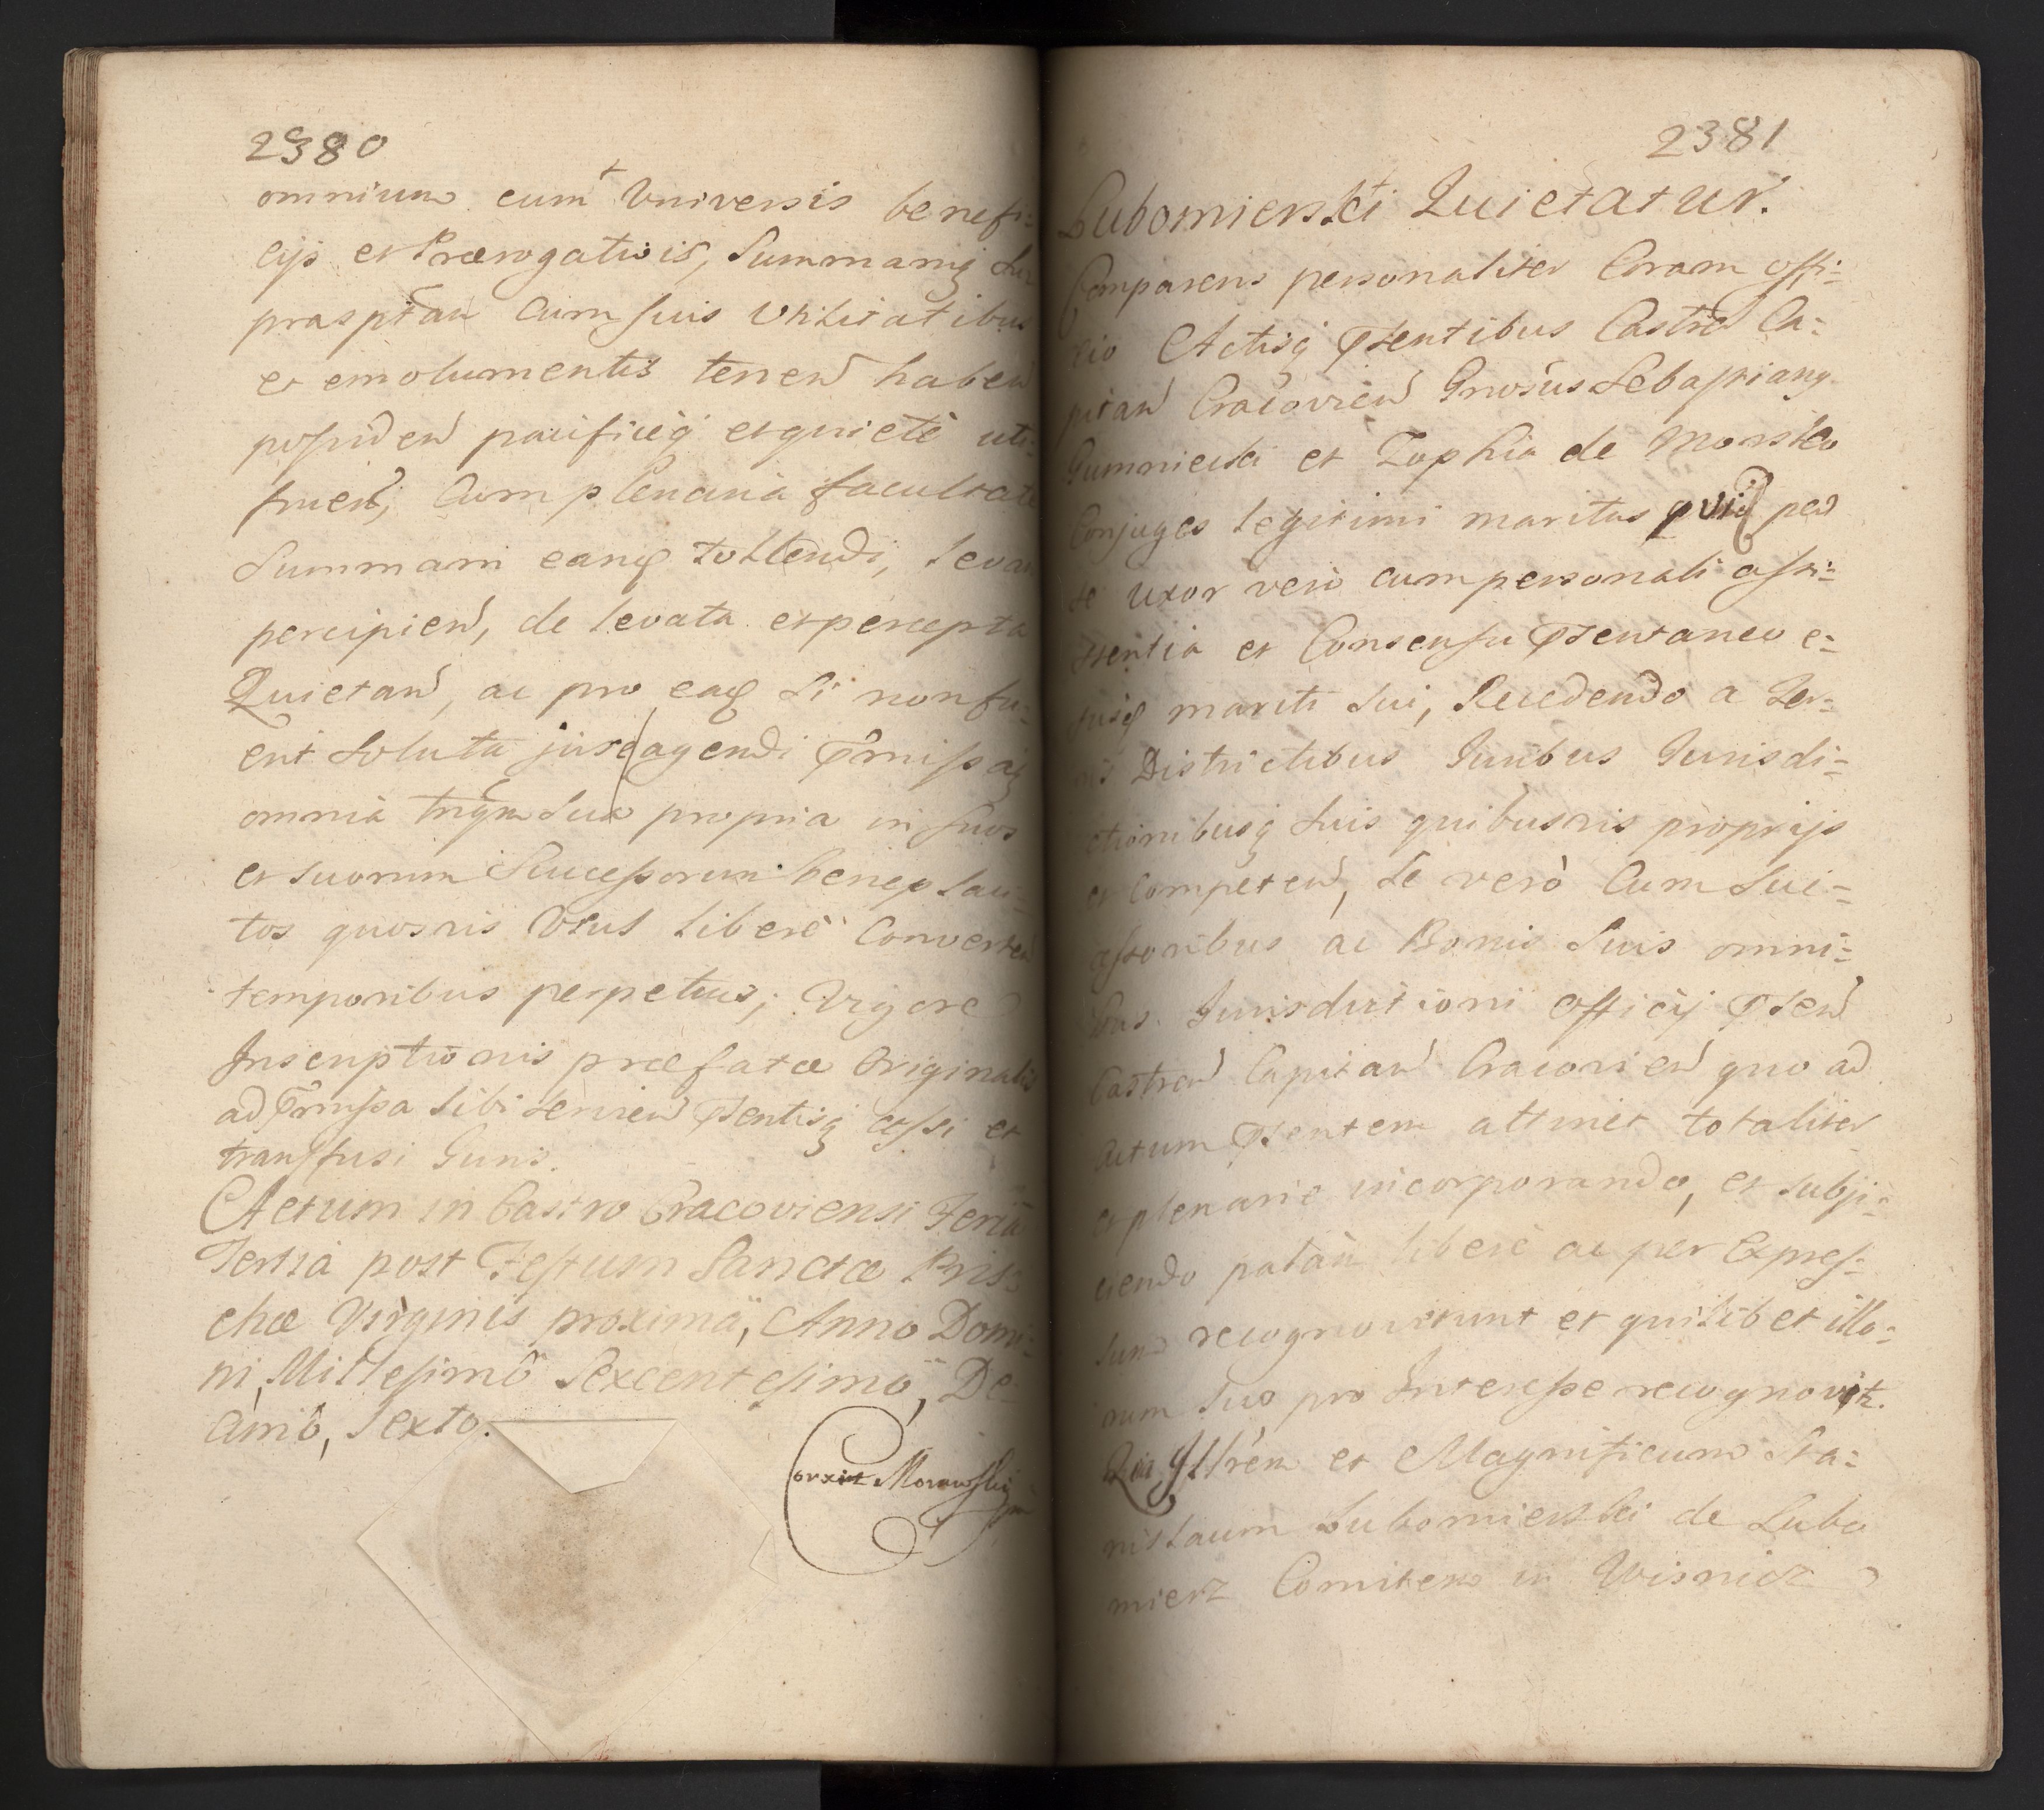 2380
omnium cum Universis benefi-
cijs et Prærogativis, Summamq
praspttam cum suis Utilitatibus
et emolumentis tenend habend
possidend pacificèq et quietè uti-
fruend, cum plenaria facultate
Summam eandq tollendi, levan
percipiend, de levata et percepta
Quietand, ac pro eadq si non fu-
erit soluta jure agendi pmissaq
omnia tnqm sua propria in suos
et suorum Successorum beneplaci-
tos quosvis Usus liberè Converten
temporibus perpetuis; Vigore
Inscriptionis præfatæ Originalis
ad pmissa sibi servien pntisq cessi et
transfusi Juris.
Actum in Castro Cracoviensi Feria
Tertia post Festum Sanctæ Pris-
chæ Virginis proxima, Anno Domi-
ni, Millesimo Sexcentesimo, De-
cimo, Sexto.
Correxit Morawski
2381
Lubomierski Quietatur.
Comparens personaliter Coram offi-
cio Actisq pntibus Castren Ca-
pitan Cracovien Gnosus Sebastianq
Gumnieski et Zophia de Morsko
Conjuges legitimi maritus quid per
se uxor vero cum personali assi-
stentia et Consensu pntaneo e-
jusdq mariti sui, Recedendo a Ter-
ris Districtibus Juribus Jurisdi-
ctionibusq suis quibusvis proprijs
et competen, se verò cum Suc-
cessoribus ac Bonis Suis omni-
bus Jurisdictioni officij pnten
Castren Capitan Cracovien quo ad
actum pntem attinet totaliter
et plenarie incorporando, et subji-
ciendo palàm liberè ac per Expres-
sum recognoverunt et quilibet illo-
rum suo pro Interesse recognovit.
Quia Illrem et Magnificum Sta-
nislaum Lubomierski de Lubo
mierz Comitem in Wisnicz